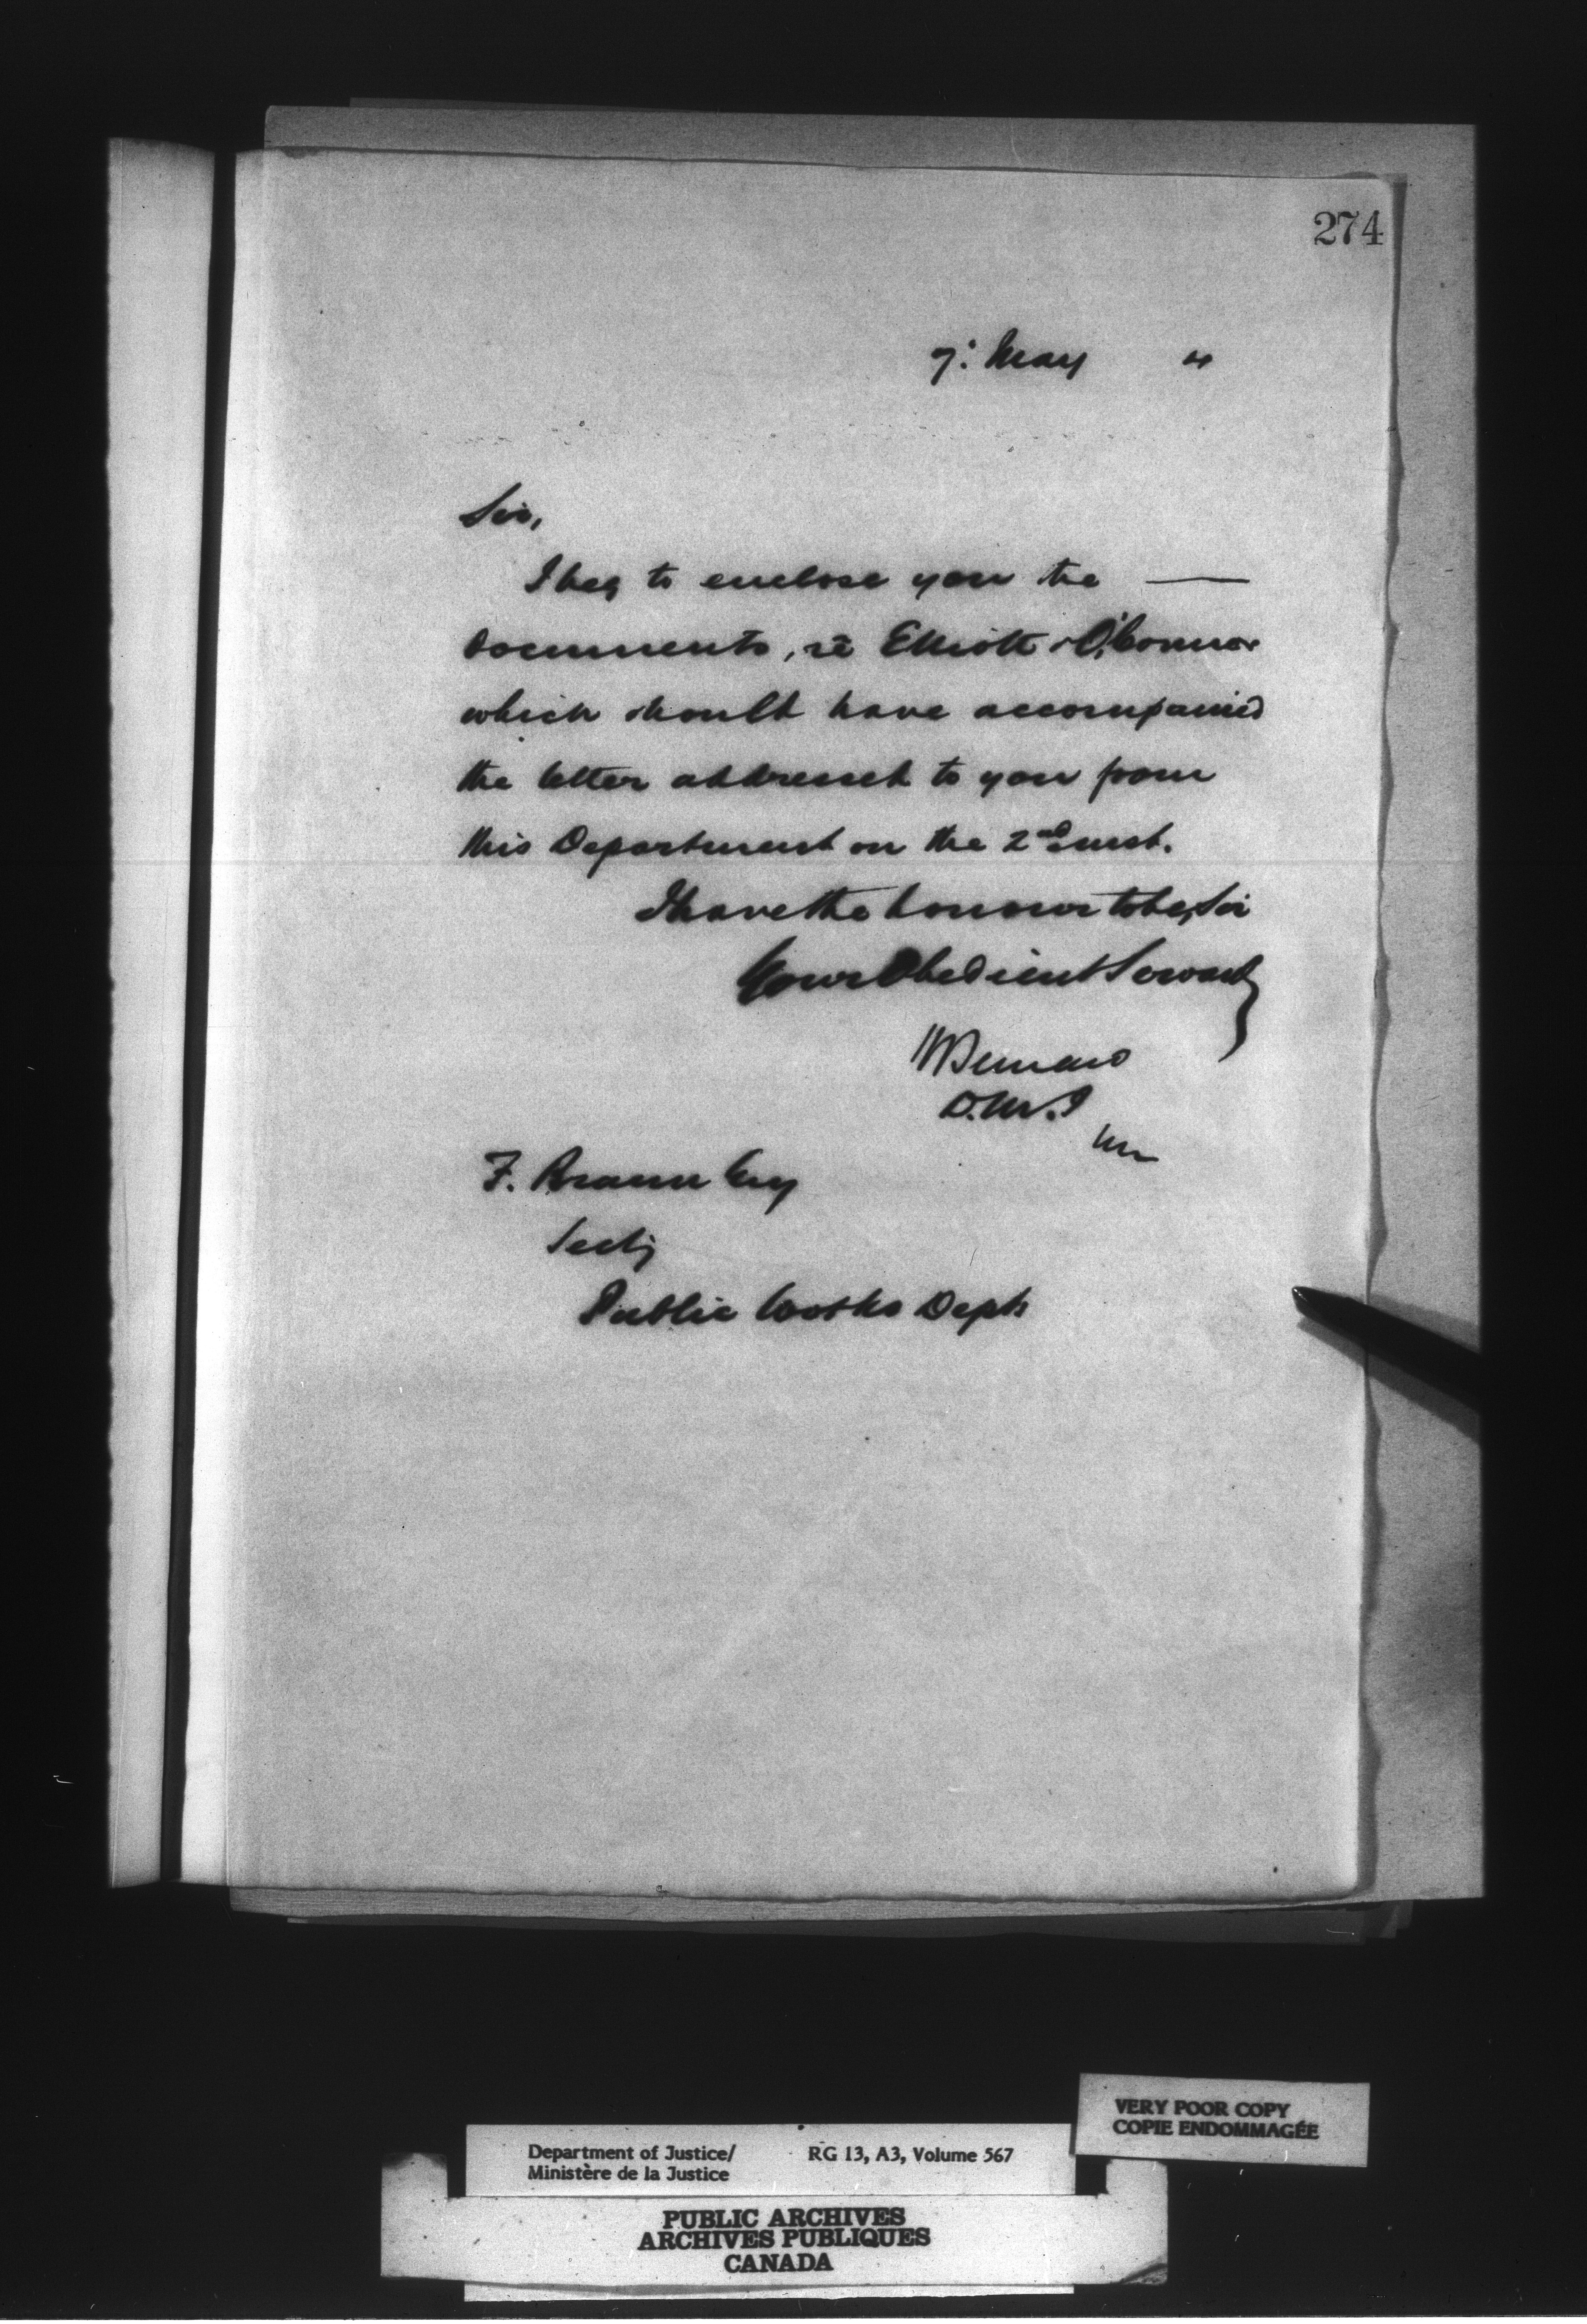 274
7: May 4
Sir,
I beg to enclose you the —
documents, rē Elliott & O'Connor
which should have accompanied
the letter addressed to you from
this Department on the 2nd inst.
I have the honour to be, Sir
Your Obedient Servant
H Bernard
D.M.J
F. Braun Esq
Secty
Public Works Dept
VERY POOR COPY
COPIE ENDOMMAGÉE
Department of Justice/ RG 13, A3, Volume 567
Ministère de la Justice
PUBLIC ARCHIVES
ARCHIVES PUBLIQUES
CANADA